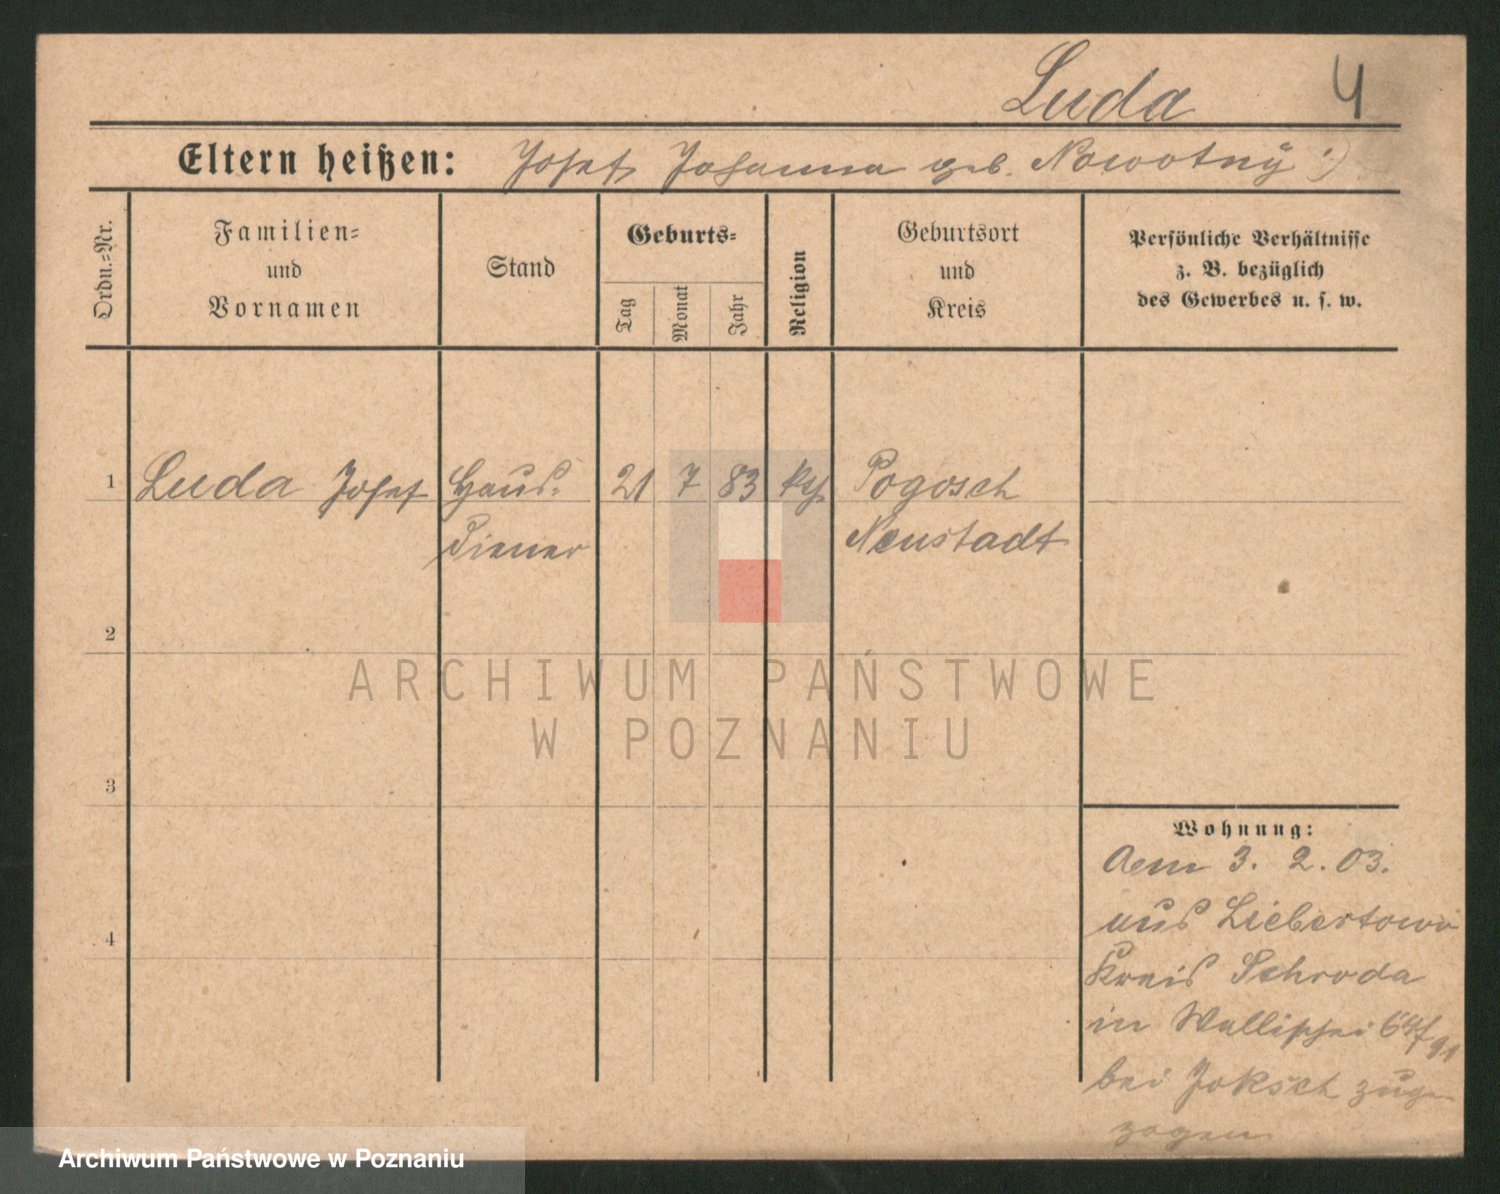 Luda 4
Eltern heißen: Josef Johanna geb. Nowotny
Ordn.-Nr.
Familien-
und
Vornamen
Stand
Geburts-
Tag
Monat
Jahr
Religion
Geburtsort
und
Kreis
Persönliche Verhältnisse
z. B. bezüglich
des Gewerbes u. s. w.
1 Luda Josef Haus- 21 7 83 kth Pogosch
diener Neustadt
2
ARCHIWUM PAŃSTWOWE
W POZNANIU
3
Wohnung:
Am 3. 2. 03.
aus Liebertowo
4
Kreis Schroda
in Wallischei
bei Joksch zuge-
zogen
Archiwum Państwowe w Poznaniu